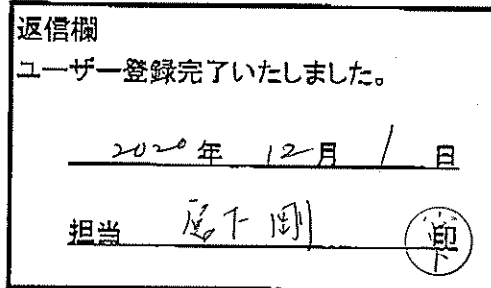 返信欄
ユーザー登録完了いたしました。
2020年 12月 1日
担当 尾下剛 印